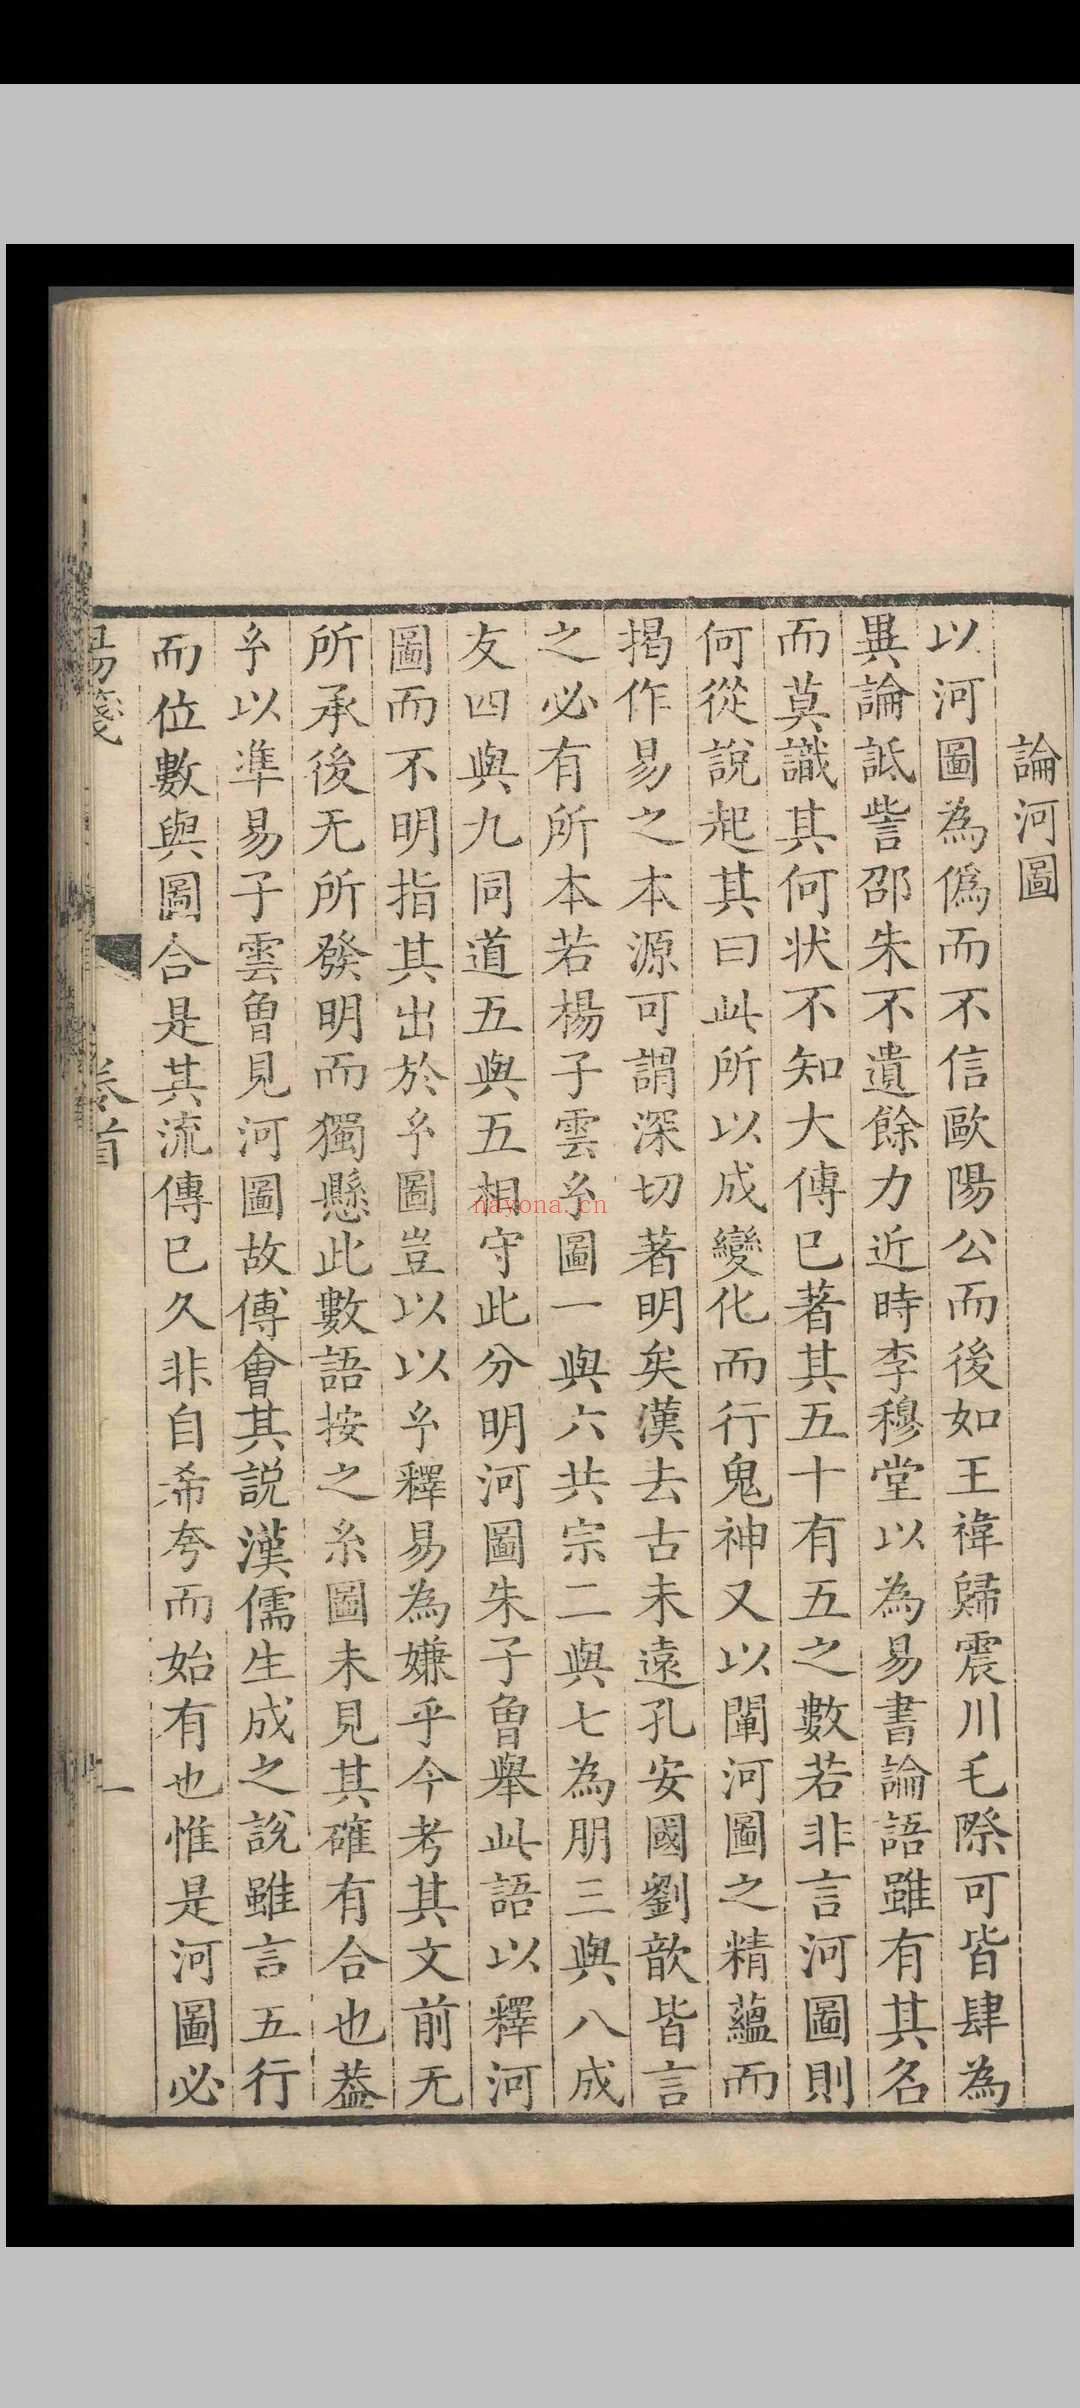 論河圖
以河圖為偽而不信歐陽公而後如王禕歸震川毛際可皆肆為
異論詆訾邵朱不遺餘力近時李穆堂以為易書論語雖有其名
而莫識其何狀不知大傳已著其五十有五之數若非言河圖則
何從說起其曰此所以成變化而行鬼神又以闡河圖之精蘊而
揭作易之本源可謂深切著明矣漢去古未遠孔安國劉歆皆言
之必有所本若楊子雲𤣥圖一與六共宗二與七為朋三與八成
友四與九同道五與五相守此分明河圖朱子曾舉此語以釋河
圖而不明指其出於𤣥圖豈以以𤣥釋易為嫌乎今考其文前无
所承後无所發明而獨懸此數語按之𤣥圖未見其確有合也葢
𤣥以準易子雲曾見河圖故傅會其說漢儒生成之說雖言五行
而位數與圖合是其流傳已久非自希夸而始有也惟是河圖必
易箋
卷首
一
nayona.cn